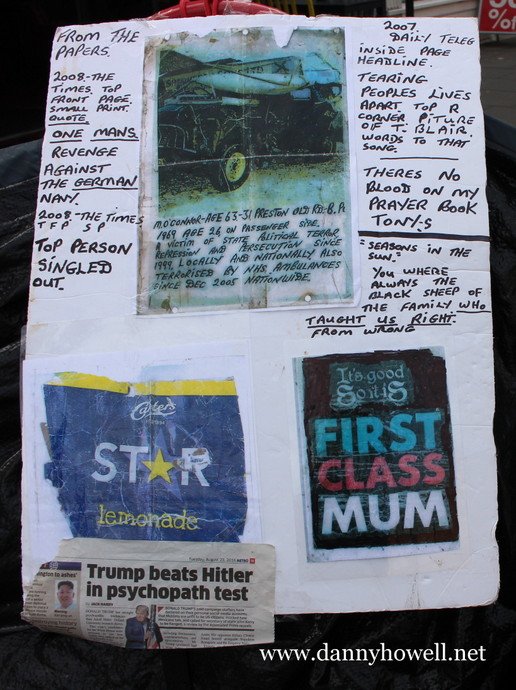 FROM THE
PAPERS.
2008-THE
TIMES TOP
FRONT PAGE.
SMALL PRINT.
QUOTE.
ONE MANS.
REVENGE
AGAINST
THE GERMAN
NAVY.
2008-THE TIMES
TFP SP
TOP PERSON
SINGLED
OUT.
M.O'CONNOR-AGE 63-31 PRESTON OLD RD-B.P.
1969 AGE 26, ON PASSENGER SIDE,
A VICTIM OF STATE POLITICAL TERROR
REPRESSION AND PERSECUTION SINCE
1999. LOCALLY AND NATIONALLY ALSO
TERRORISED BY NHS AMBULANCES
SINCE DEC 2005 NATIONWIDE.
2007.
DAILY TELEG
INSIDE PAGE
HEADLINE.
TEARING
PEOPLES LIVES
APART TOP R
CORNER PITURE
OF T. BLAIR.
WORDS TO THAT
SONG.
THERES NO
BLOOD ON MY
PRAYER BOOK
TONY.S
"SEASONS IN THE
SUN."
YOU WHERE
ALWAYS THE
BLACK SHEEP OF
THE FAMILY WHO
TAUGHT US RIGHT.
FROM WRONG
Carters
STAR
lemonade
It's good
So it is
FIRST
CLASS
MUM
Tuesday, August 23, 2016 METRO
ington to ashes'
Trump beats Hitler
in psychopath test
By JACK HARDY
DONALD TRUMP'S
www.dannyhowell.net